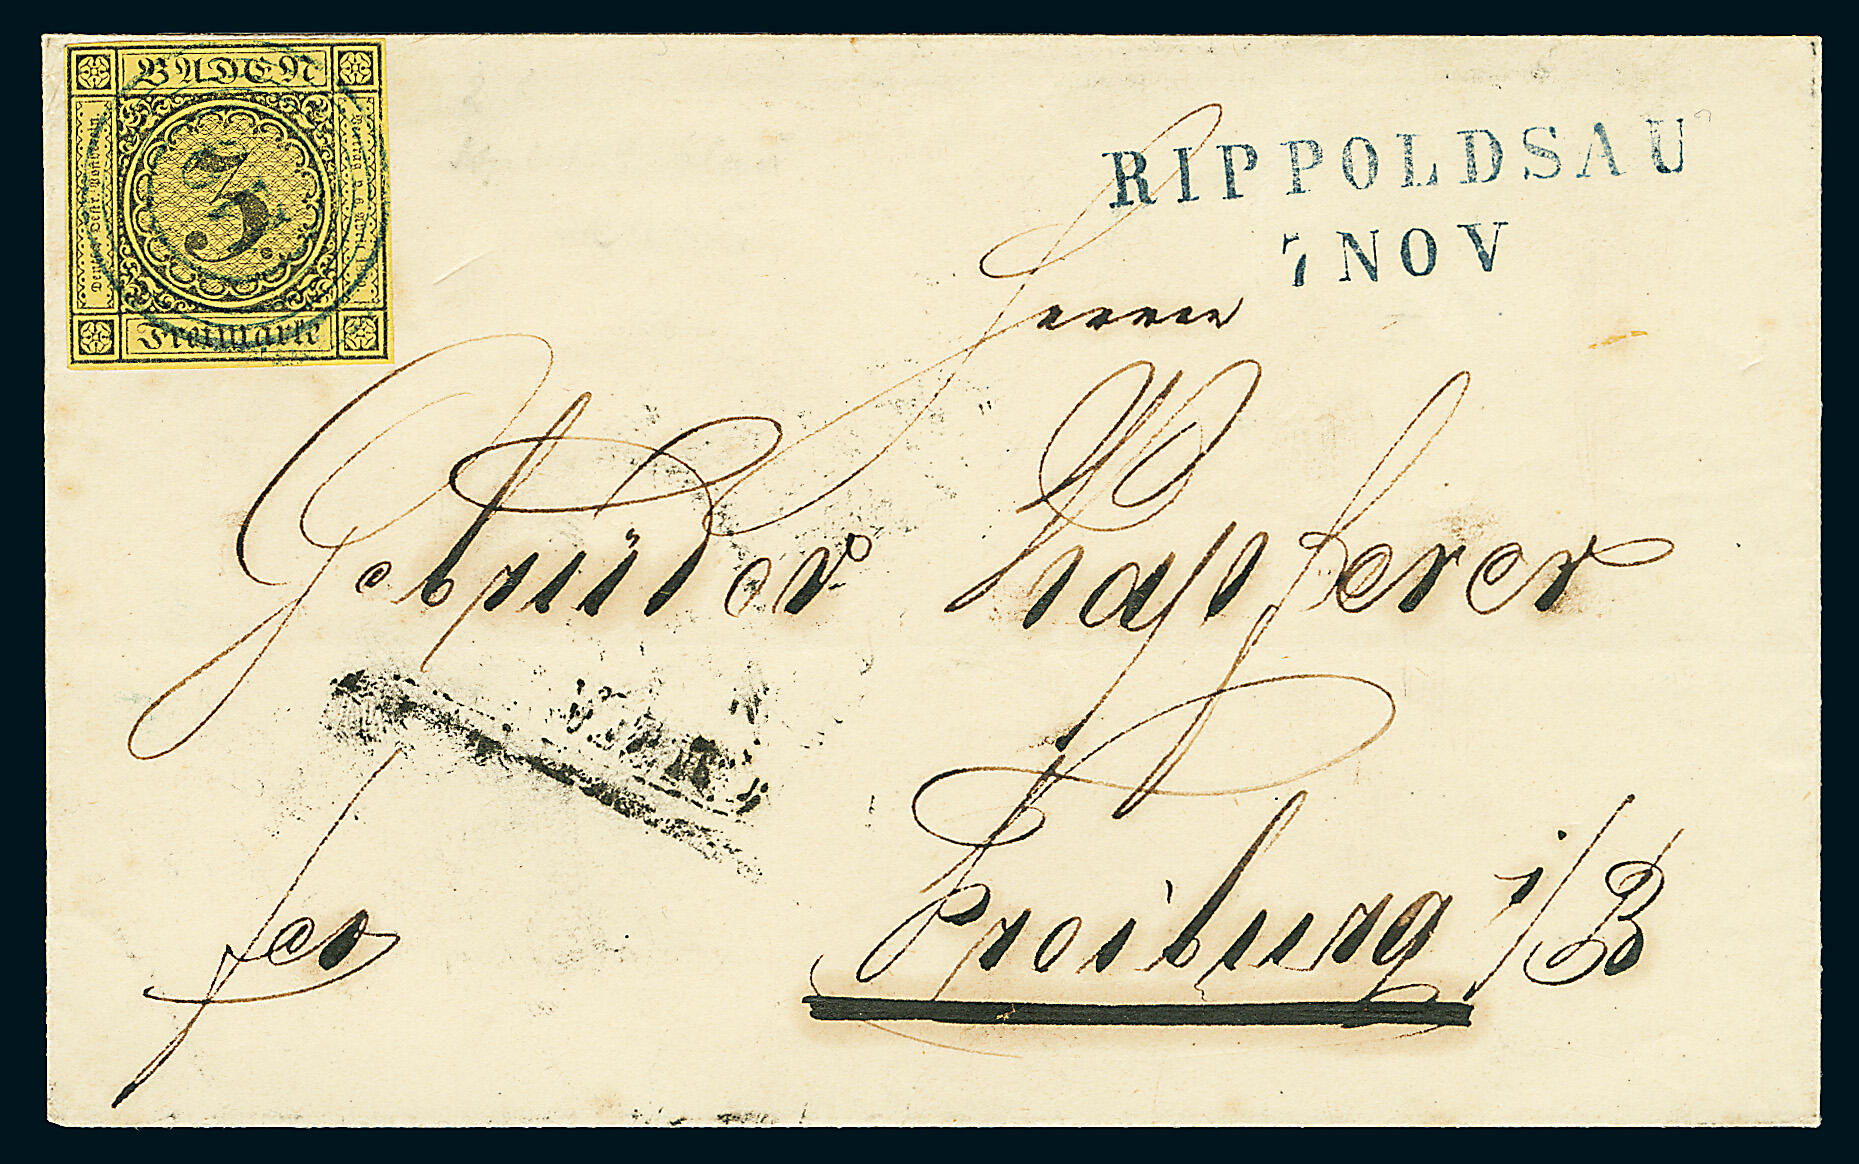 BADEN
3.
Freimarke
RIPPOLDSAU
7 NOV
Herren
Gebrüder Kapferer
Freiburg i/B